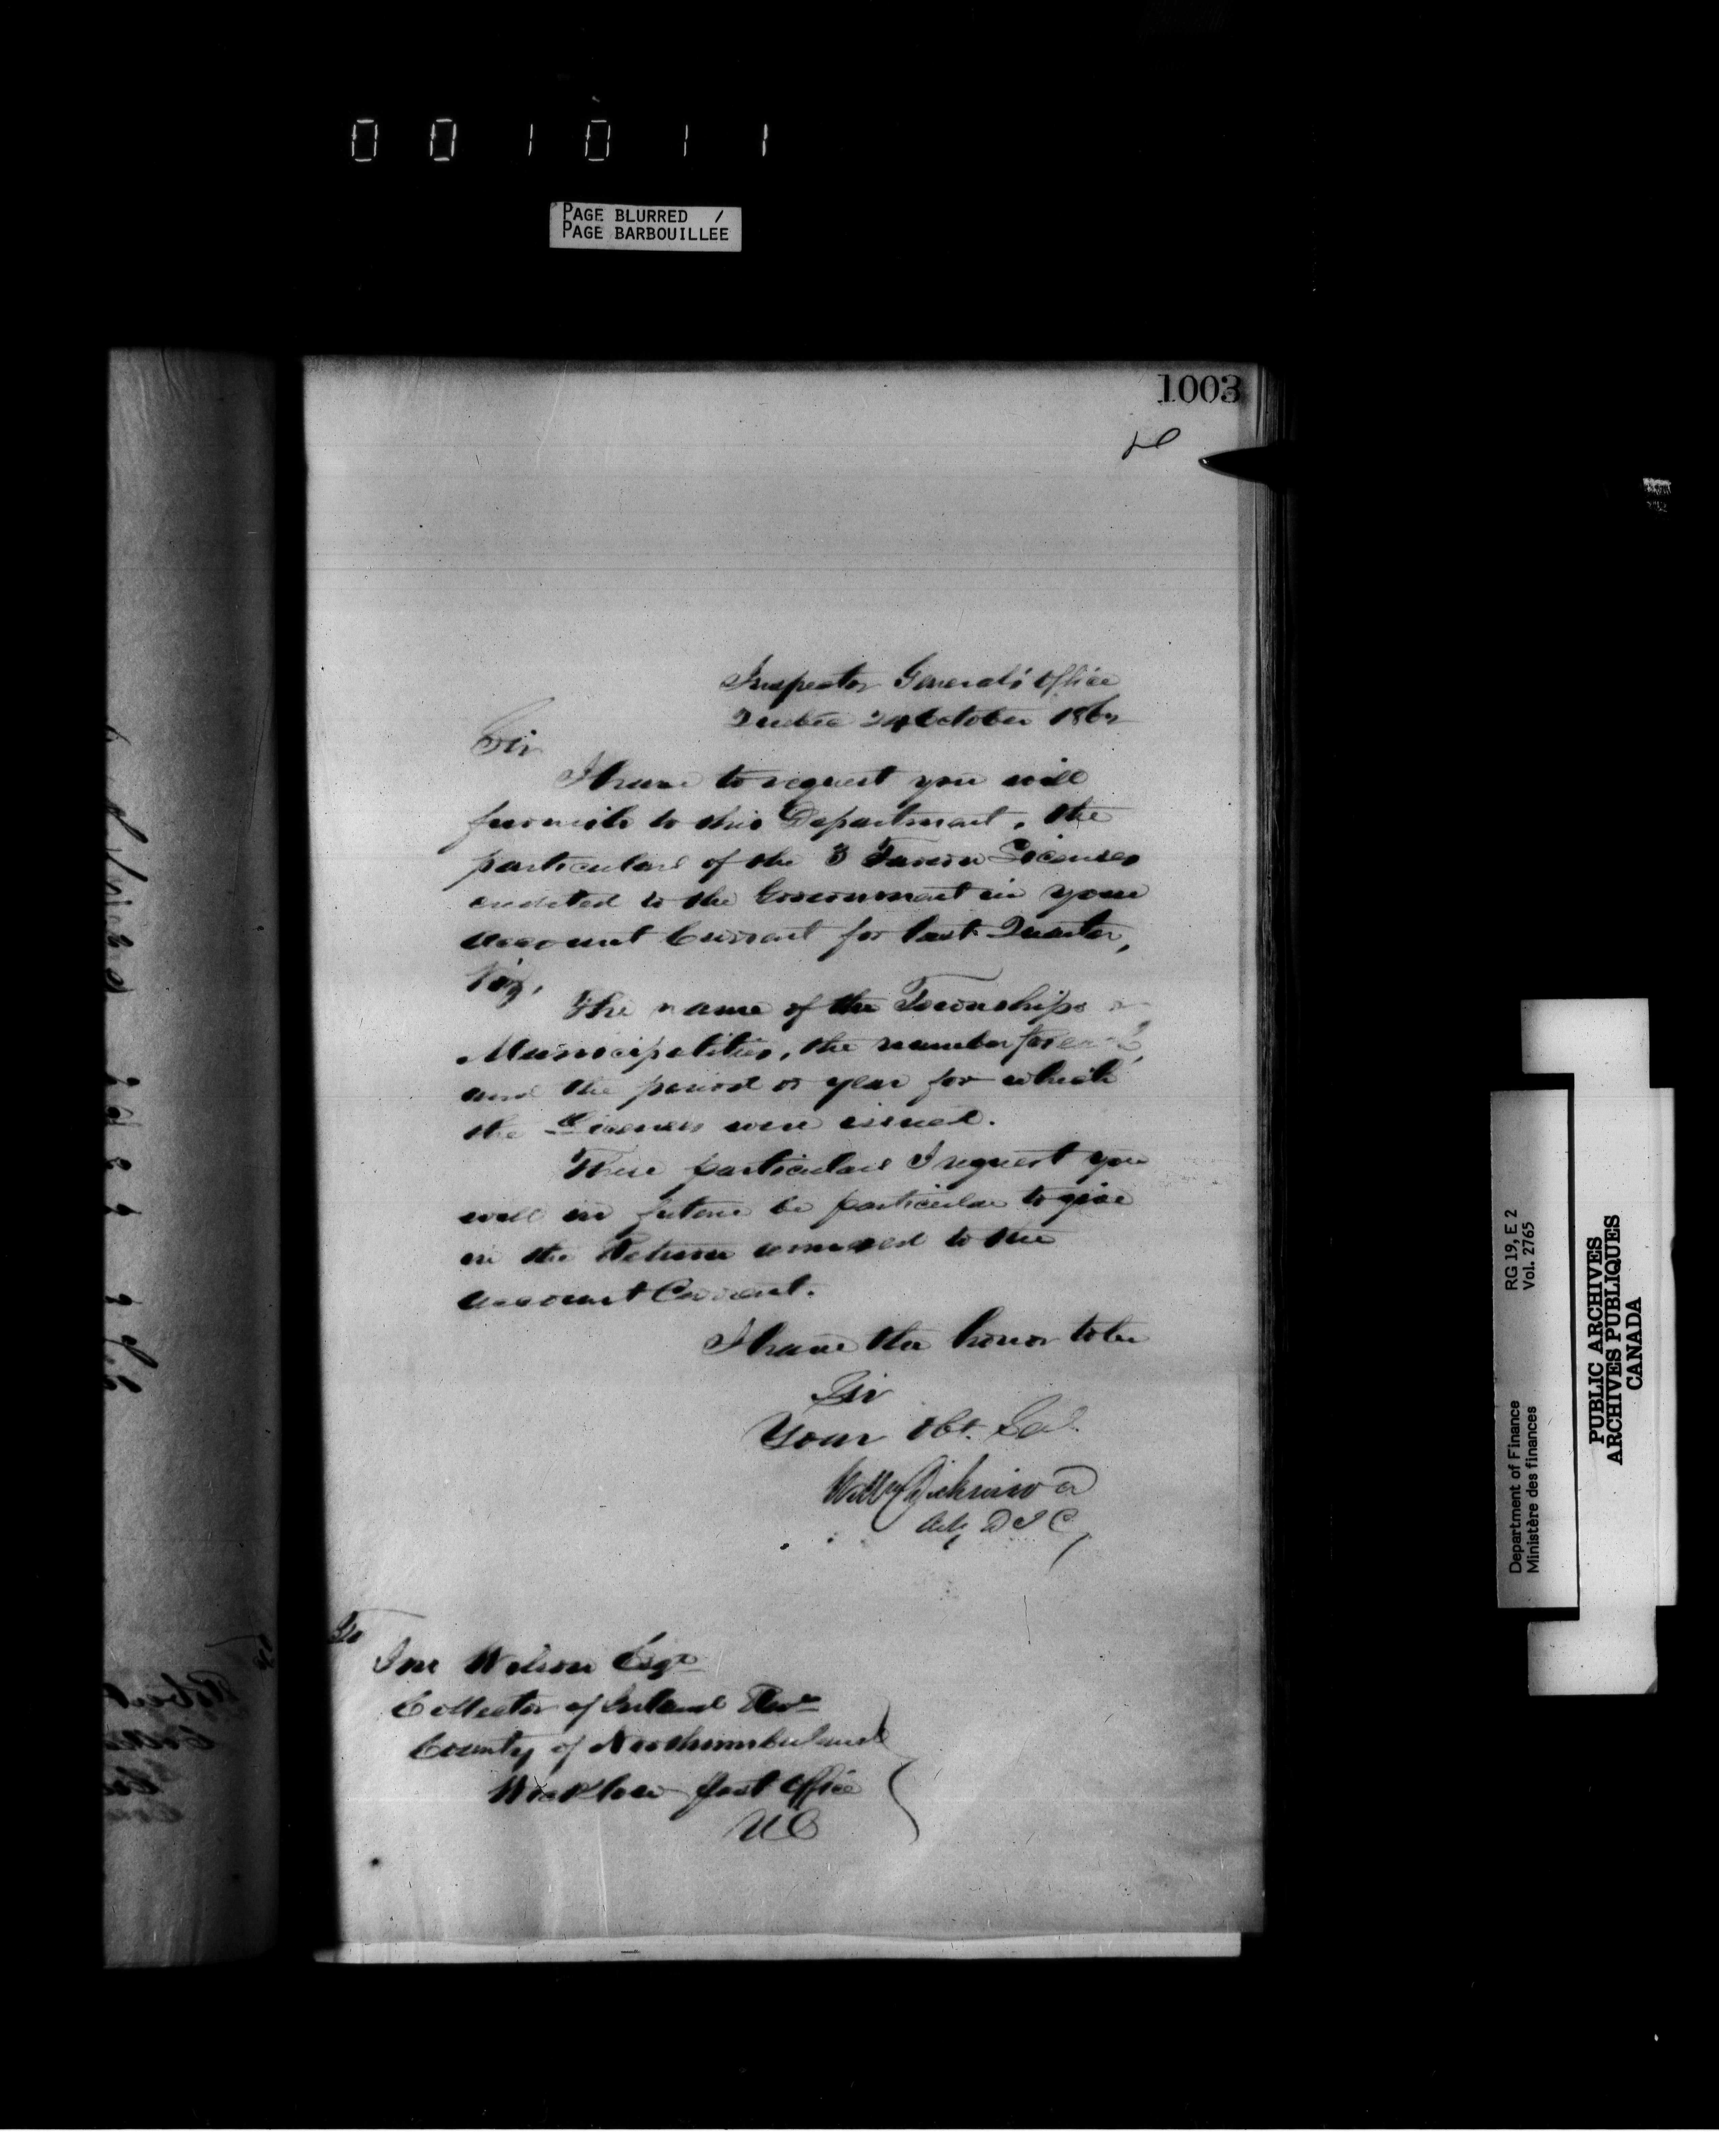 001011
PAGE BLURRED /
PAGE BARBOUILLEE
1003
Inspector General's Office
Quebec 24 October 186
Sir
I have to request you will
furnish to this Department, the
particulars of the 3 Tavern Licenses
credited to the Government in your
account Current for last Quarter,
Viz,
The name of the Townships or
Municipalities, the number for each,
and the period or year for which
the Licenses were issued.
These particulars I request you
will in future be particular to give
in the Return annexed to the
account Current.
I have the honor to be
Sir
Your Obt. Set.
Dickinson
Actg D I G
To
Jno Wilson Esqr
Collector of Inland Reve
County of Northumberland
Wicklow Post Office
U C
RG 19, E 2
Vol. 2765
Department of Finance
Ministère des finances
PUBLIC ARCHIVES
ARCHIVES PUBLIQUES
CANADA